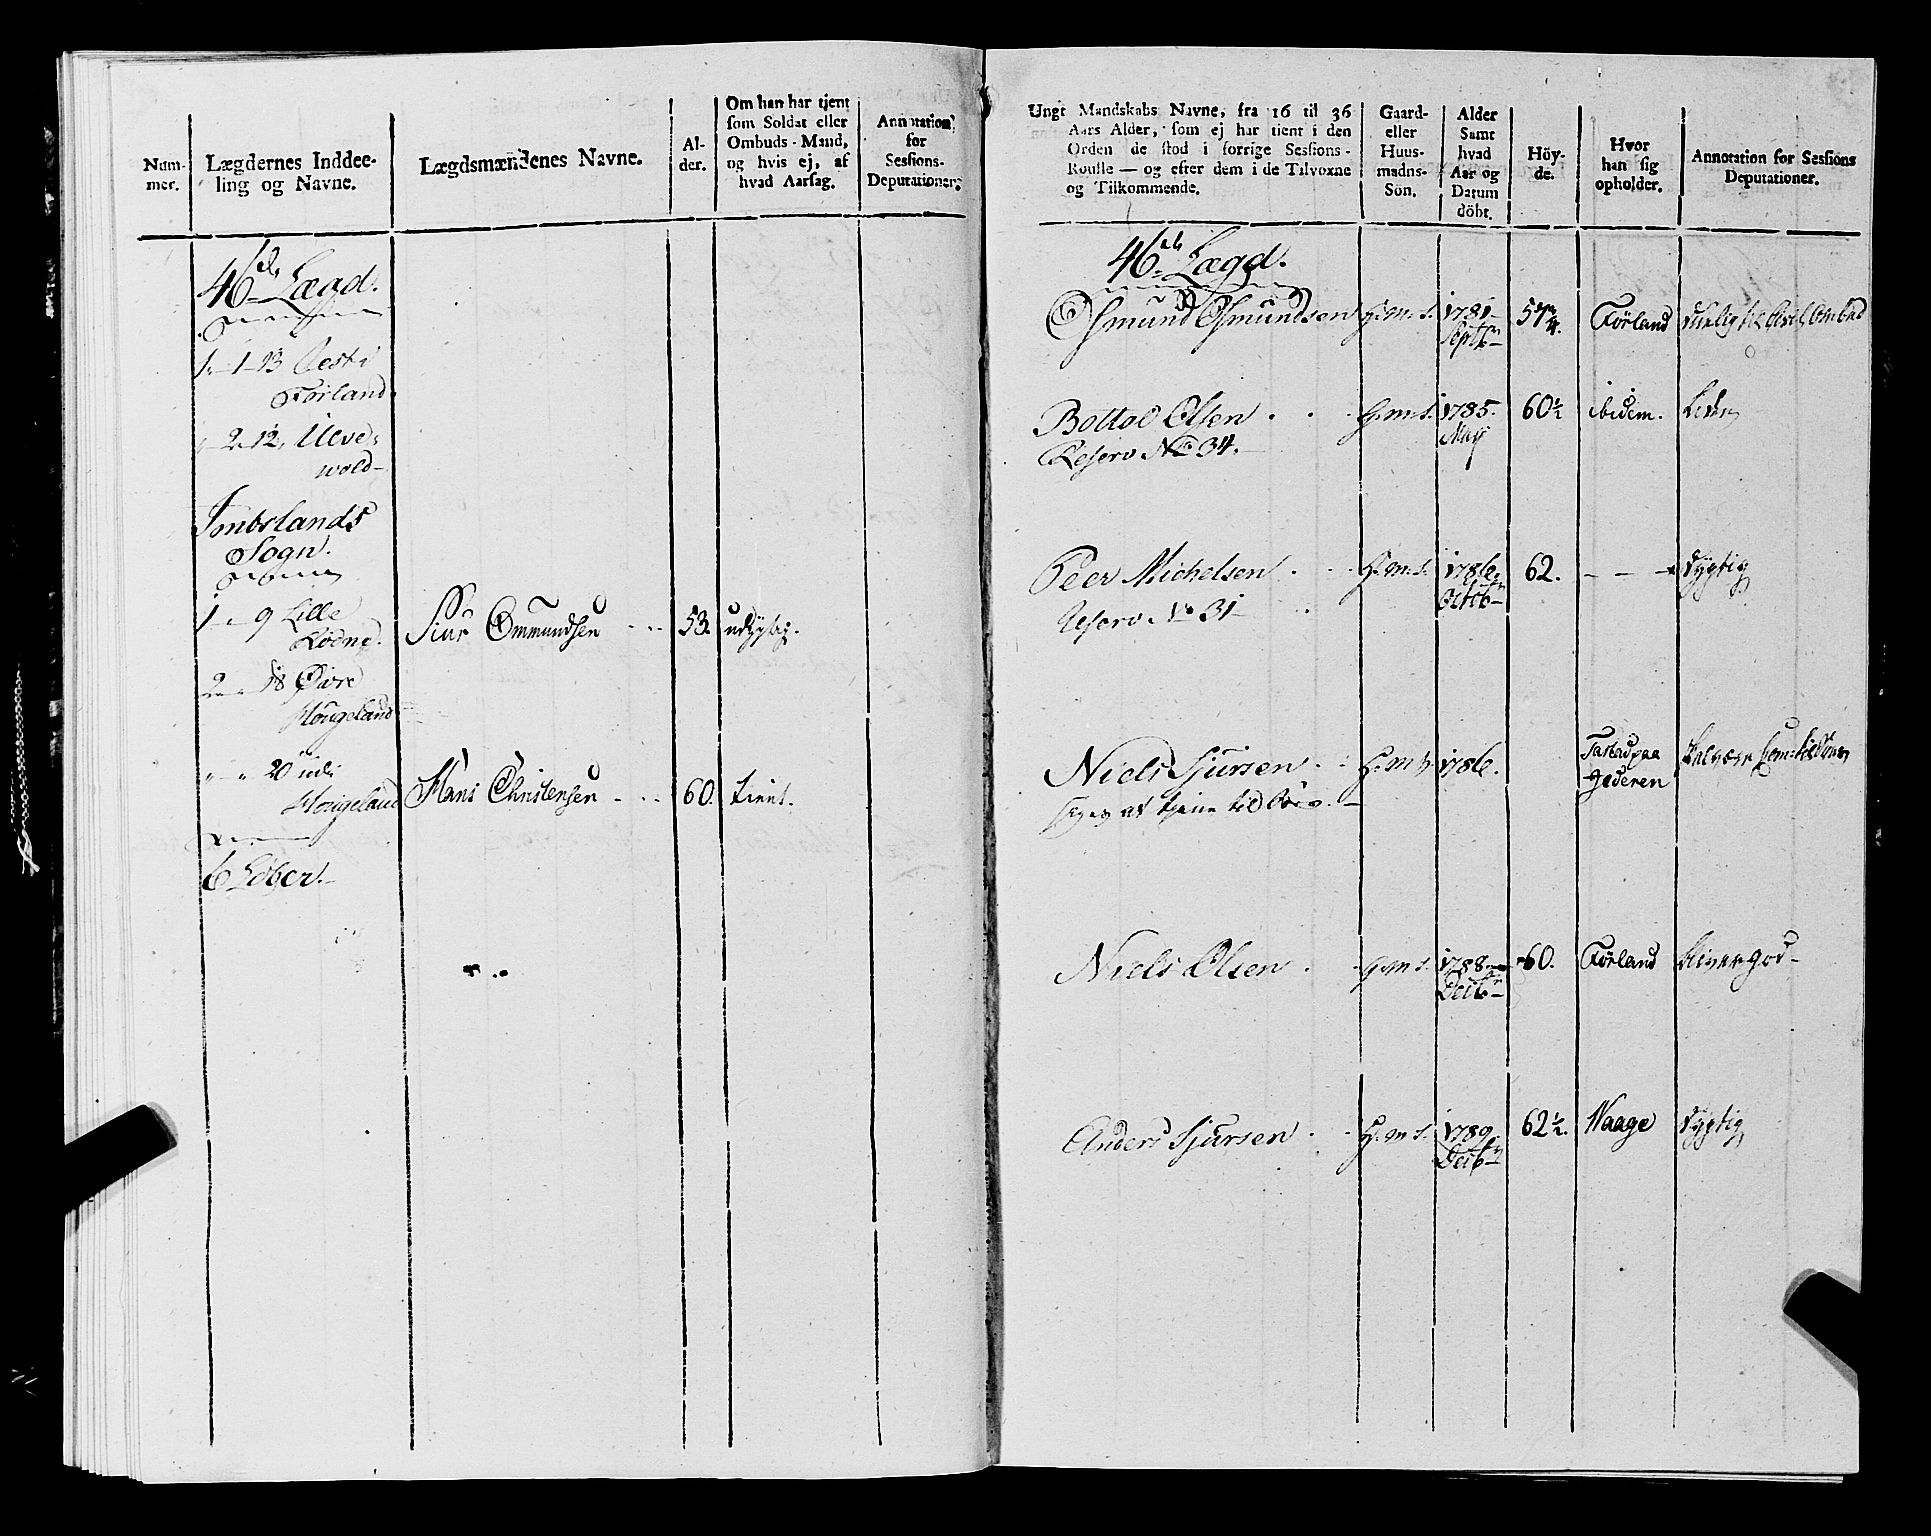 Num-
mer.
Lægdernes Inddee-
ling og Navne.
Lægdsmændenes Navne.
Al-
der.
Om han har tjent
som Soldat eller
Ombuds-Mand,
og hvis ej, af
hvad Aarsag.
Annotation
for
Sessions-
Deputationer.
46de Lægd.
1. 1 - 13
Førland
2 - 12
wold
Imbslands
Sogn.
1 - 9 Lille
2 - 18 Øvre
Hougeland
20
Hougeland
6 Lober.
Siur Ommundsen 53. udygtig.
Hans Christensen 60. tient.
Ungt Mandskabs Navne, fra 16 til 36
Aars Alder, som ej har tient i den
Orden de stod i forrige Sessions-
Roulle — og efter dem i de Tilvoxne
og Tilkommende.
Gaard-
eller
Huus-
mands-
Sön.
Alder
Samt
hvad
Aar og
Datum
döbt.
Höy-
de.
Hvor
han sig
opholder.
Annotation for Sessions
Deputationer.
46de Lægd.
Osmund Osmundsen g.m.s. 1781 57¾. Førland
Septbr
Bottol Olsen g.m.s. 1785. 60½ ibidem.
May
Reserv No 34.
Peer Michelsen g.m.s. 1786. 62. - - - dygtig
Octobr
Reserv No 31
Niels Sjursen g.m.s. 1786.
Jæderen
Niels Olsen g.m.s. 1788 60. Førland
Decbr
Anders Sjursen g.m.s. 1789. 62½. Waage dygtig
Decbr